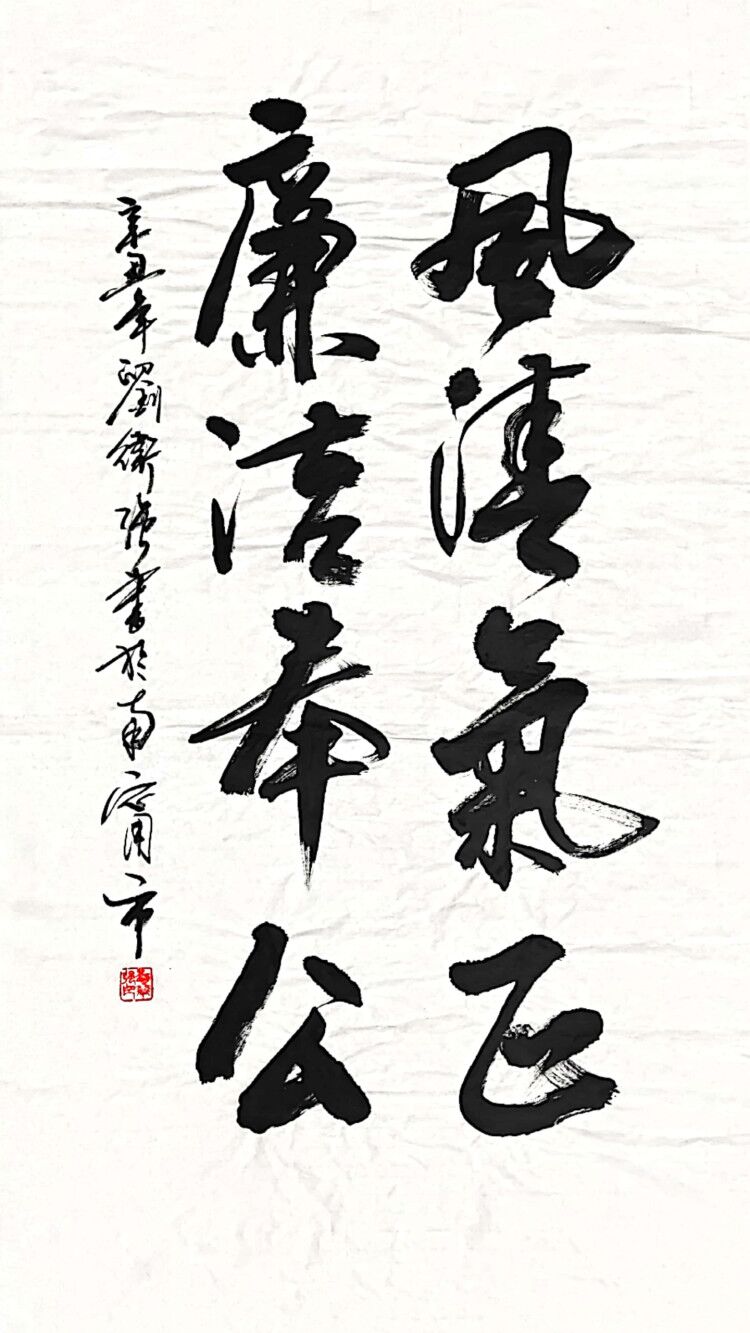 風清氣正
廉洁奉公
辛丑年劉衛強書於南寧市